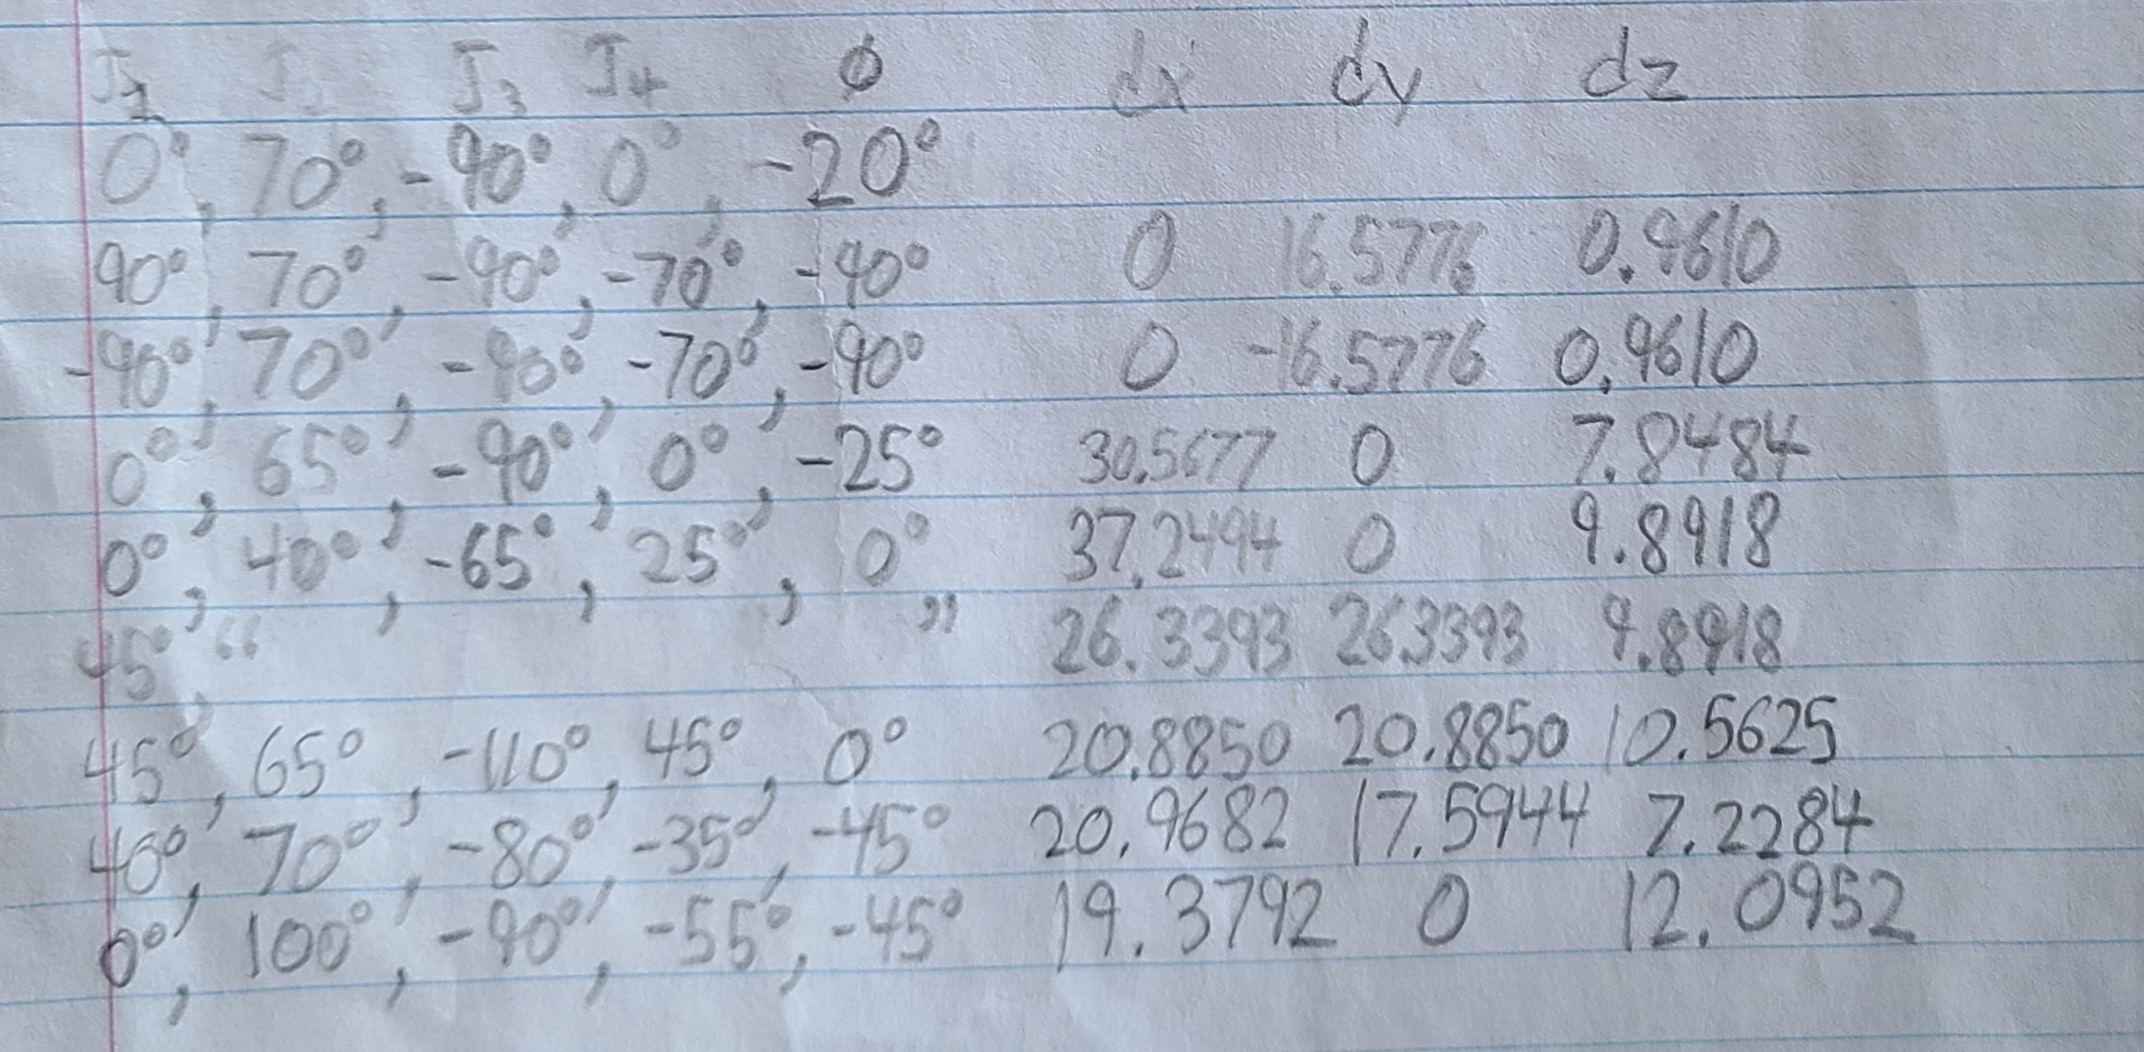 J1 J2 J3 J4 φ dx dy dz
0°, 70°, -90°, 0°, -20°
90°, 70°, -90°, -70°, -90° 0 16.5776 0.9610
-90°, 70°, -90°, -70°, -90° 0 -16.5776 0.9610
0°, 65°, -90°, 0°, -25° 30.5677 0 7.8484
0°, 40°, -65°, 25°, 0° 37.2494 0 9.8918
45°, “ ” 26.3393 26.3393 9.8918
45°, 65°, -110°, 45°, 0° 20.8850 20.8850 10.5625
40°, 70°, -80°, -35°, -45° 20.9682 17.5944 7.2284
0°, 100°, -90°, -55°, -45° 19.3792 0 12.0952